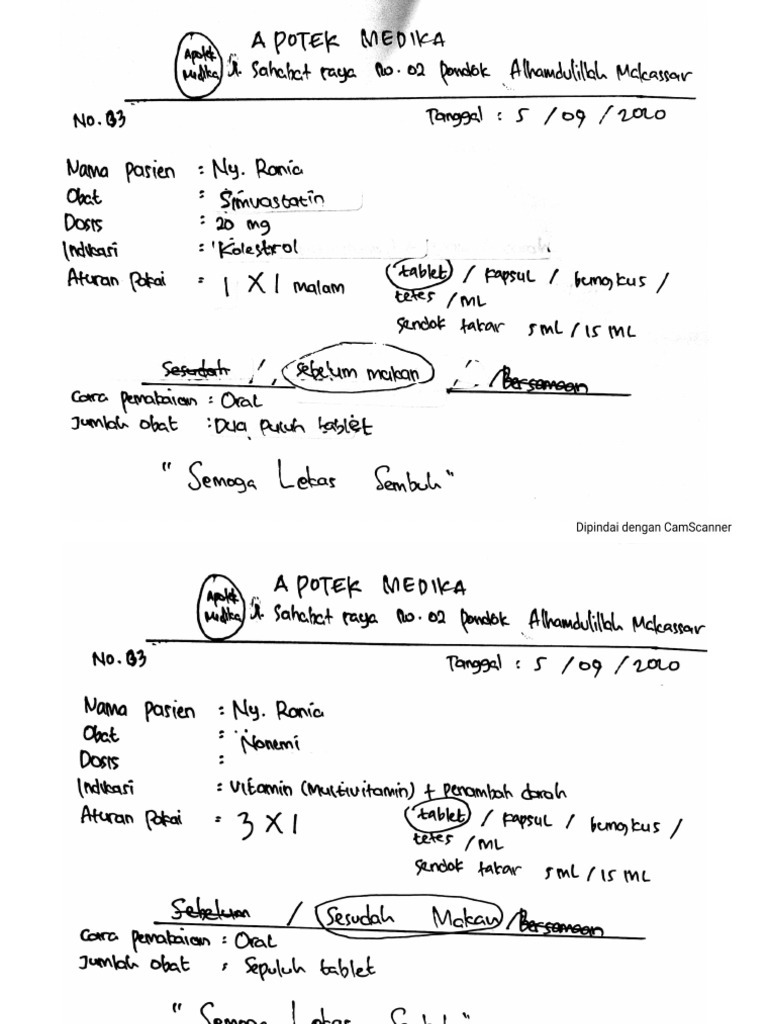 APOTEK MEDIKA
Apotek Medika
Jl. Sahabat raya no. 02 Pondok Alhamdulillah Makassar
No. 33
Tanggal : 5 / 09 / 2020
Nama Pasien : Ny. Rania
Obat : Simvastatin
Dosis : 20 mg
Indikasi : Kolestrol
Aturan Pakai : 1 X 1 malam
(tablet) / kapsul / bungkus /
tetes / ML
sendok takar 5 ML / 15 ML
Sesudah / sebelum makan / Bersamaan
Cara pemakaian : Oral
Jumlah obat : Dua puluh tablet
"Semoga Lekas Sembuh"
Dipindai dengan CamScanner
APOTEK MEDIKA
Apotek Medika
Jl. Sahabat raya no. 02 Pondok Alhamdulillah Makassar
No. 33
Tanggal : 5 / 09 / 2020
Nama Pasien : Ny. Rania
Obat : Nonemi
Dosis :
Indikasi : Vitamin (Multivitamin) + Penambah darah
Aturan Pakai : 3 X 1
(tablet) / kapsul / bungkus /
tetes / ML
sendok takar 5 ML / 15 ML
Sebelum / Sesudah Makan / Bersamaan
Cara pemakaian : Oral
Jumlah obat : Sepuluh tablet
"Semoga Lekas